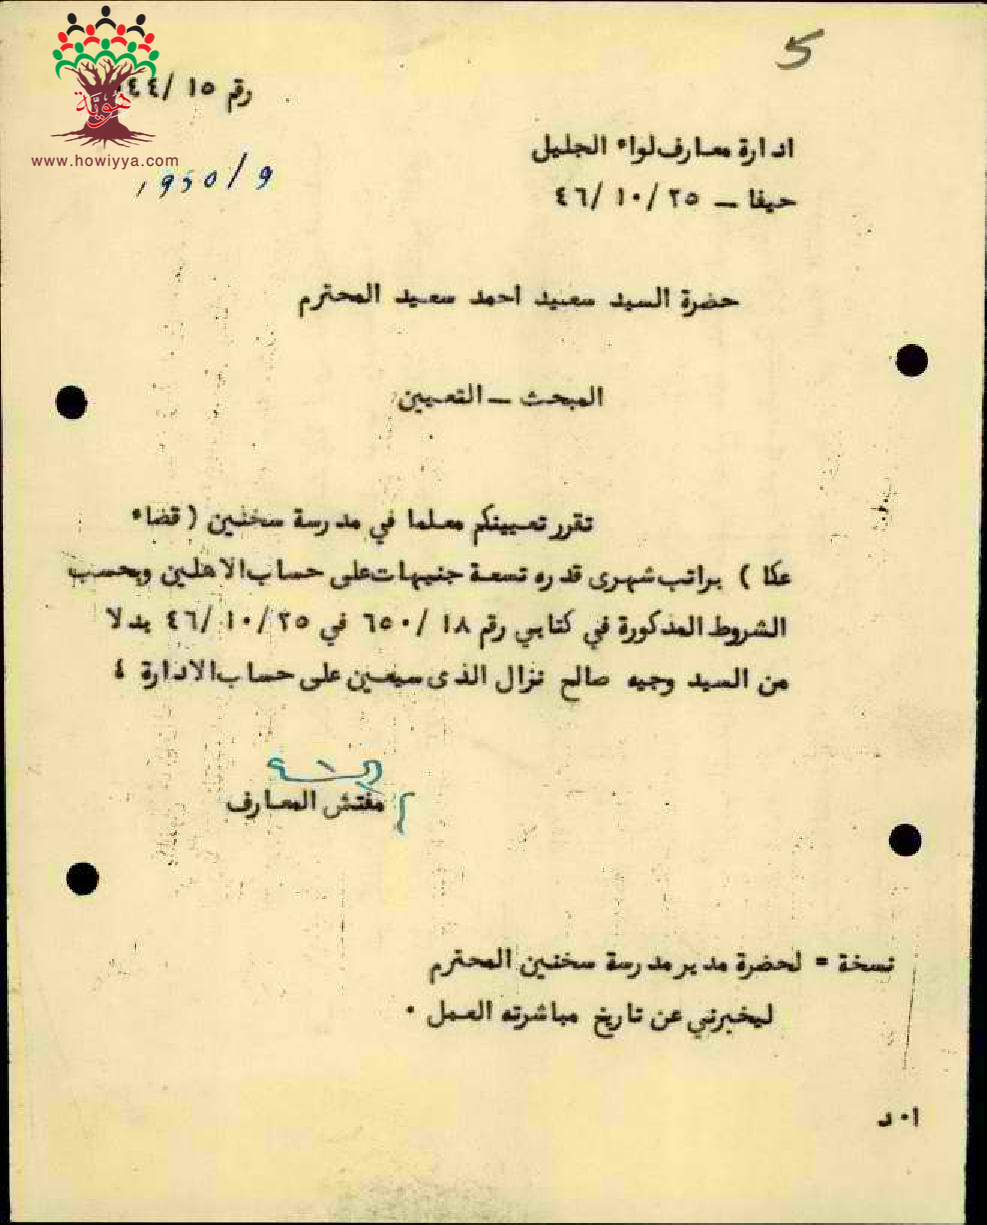 5
رقم ١٥ /٤٤
هوية
www.howiyya.com
1950/9
ادارة معارف لواء الجليل
حيفا – ٢٥ /١٠ /٤٦
حضرة السيد سعيد احمد سعيد المحترم
المبحث – التعيين
تقرر تعيينكم معلما في مدرسة سخنين ( قضاء
عكا ) براتب شهرى قدره تسعة جنيهات على حساب الاهلين وبحسب
الشروط المذكورة في كتابي رقم ١٨ /٦٥٠ في ٢٥ /١٠ /٤٦ بدلا
من السيد وجيه صالح نزال الذى سيعين على حساب الادارة
مفتش المعارف
نسخة = لحضرة مدير مدرسة سخنين المحترم
ليخبرني عن تاريخ مباشرته العمل ٠
ا٠ د